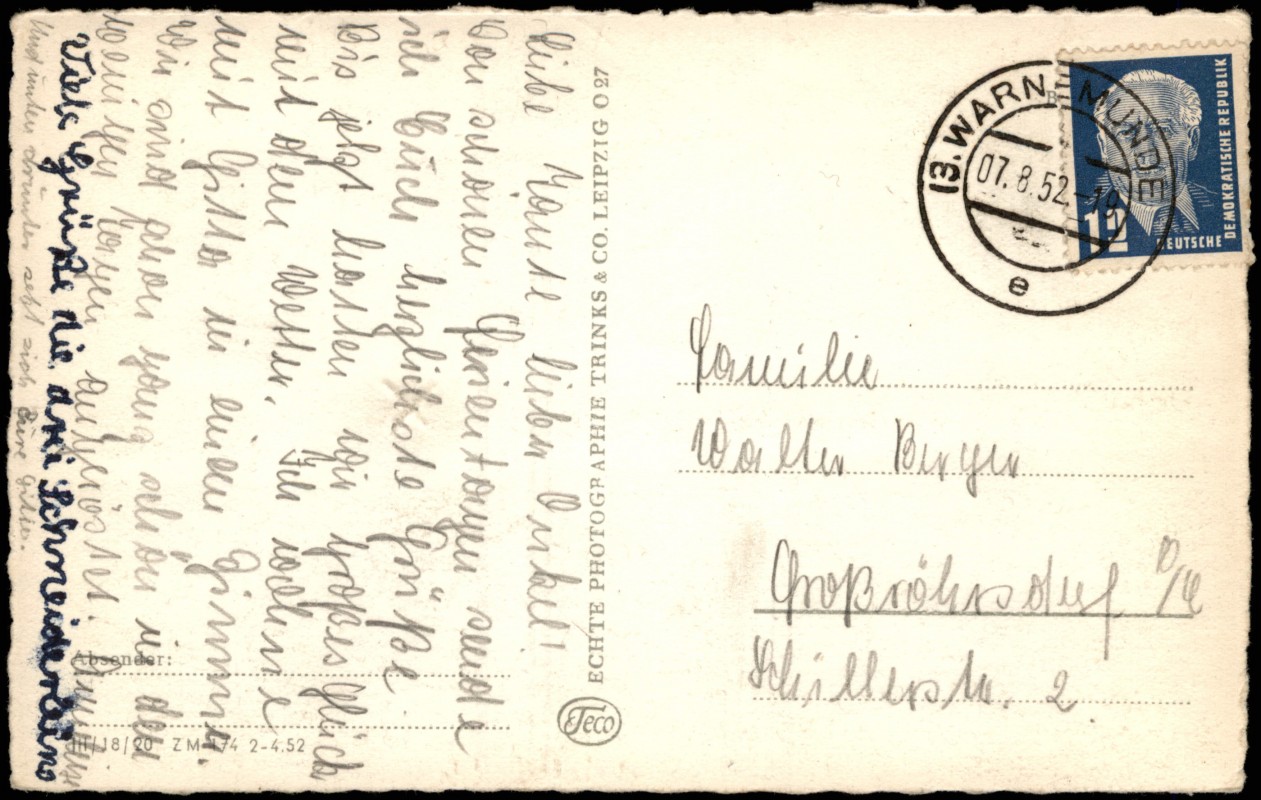 Liebe Tante, lieber Onkel!
Von schönen Ferientagen sende
ich Euch herzlichste Grüße
Bis jetzt hatten wir großes Glück
mit dem Wetter. Ich wohne
mit Gitta in einem Zimmer.
Wir sind schon ganz schön in den
wenigen Tagen
Viele Grüße die drei Schneiderleins
Und unten drunter setzt sich Eure
ECHTE PHOTOGRAPHIE TRINKS & CO. LEIPZIG O 27
Teco
Absender:
III/18/20 ZM 174 2-4.52
13. WARNEMÜNDE
07.8.52.-19
e
12
DEUTSCHE
DEMOKRATISCHE REPUBLIK
Familie
Walter Berger
Großröhrsdorf
Schillerstr. 2